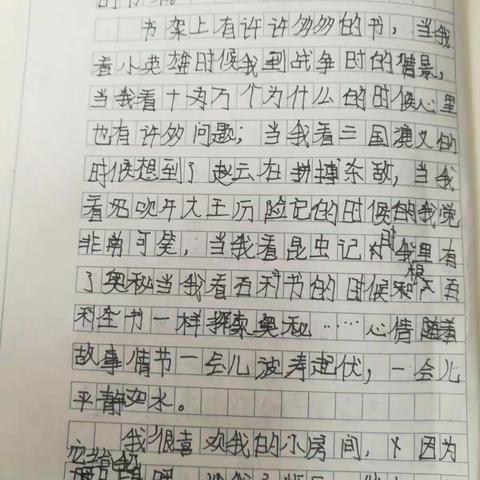 书架上有许许多多的书，当我
看小英雄时候我到战争时的情景，
当我看十万个为什么的时候心里
也有许多问题；当我看三国演义的
时候想到了赵云在拼搏杀敌，当我
看吹牛大王历险记的时候的我觉
非常可笑，当我看昆虫记时我里有
了奥秘当我看百科书的时候和
科全书一样探索奥秘……心情随着
故事情节一会儿波涛起伏，一会儿
平静如水。
我很喜欢我的小房间，因为